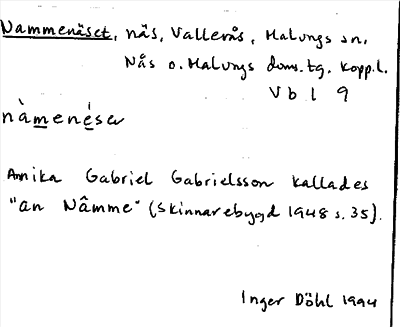 Nammenäset, näs, Vallerås, Malungs sn,
Nås o. Malungs doms.tg, Kopp.l.
V b 1 9
nàmenéser
Annika Gabriel Gabrielsson kallades
"an Nâmme" (Skinnarebygd 1948 s. 35).
Inger Döhl 1994